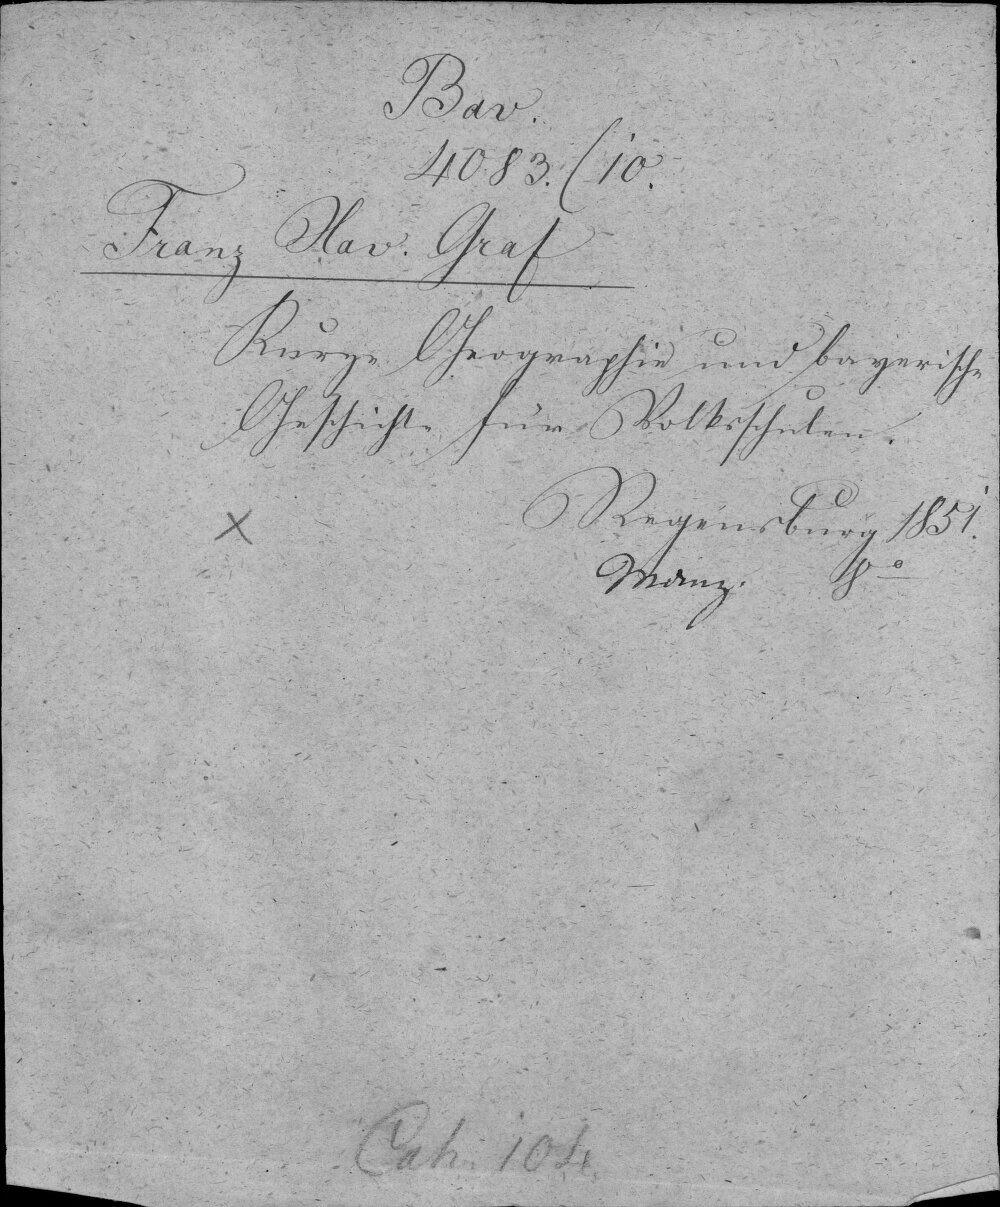 Bav.
4083.(10.
Franz Xav. Graf
Kurze Geographie und bayerische
Geschichte für Volksschulen.
Regensburg 1851.
Manz. 8°
X
Cah. 104.